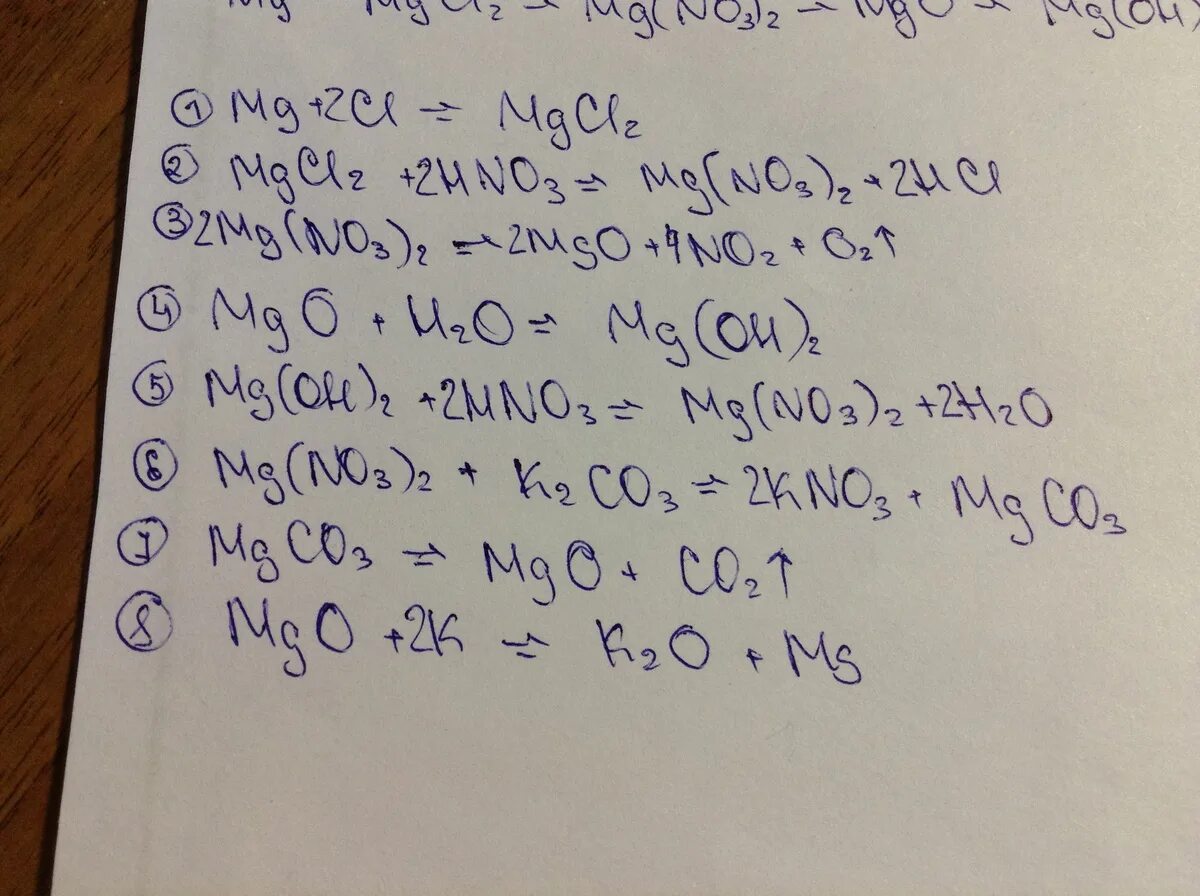 Mg MgCl₂ → Mg(NO₃)₂ → MgO → Mg(OH)
① Mg + 2Cl ⇒ MgCl₂
② MgCl₂ + 2HNO₃ ⇒ Mg(NO₃)₂ + 2HCl
③ 2Mg(NO₃)₂ ⇒ 2MgO + 4NO₂ + O₂↑
④ MgO + H₂O ⇒ Mg(OH)₂
⑤ Mg(OH)₂ + 2HNO₃ ⇒ Mg(NO₃)₂ + 2H₂O
⑥ Mg(NO₃)₂ + K₂CO₃ ⇒ 2KNO₃ + MgCO₃
⑦ MgCO₃ ⇒ MgO + CO₂↑
⑧ MgO + 2K ⇒ K₂O + Mg